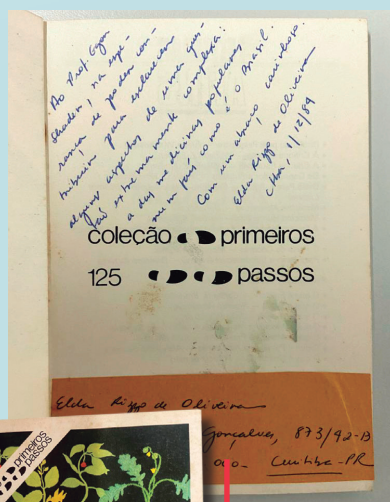 Ao Prof. Egon
Shaden, na espe-
rança de poder con-
tribuir para esclarecer
alguns aspectos de uma ques-
tão extremamente complexa:
a das medicinas populares
num país como é o Brasil.
Com um abraço carinhoso.
Elda Rizzo de Oliveira
1/12/89
coleção primeiros
125 passos
Elda Rizzo de Oliveira
Gonçalves, 873/92-B
Curitiba-PR
primeiros
passos